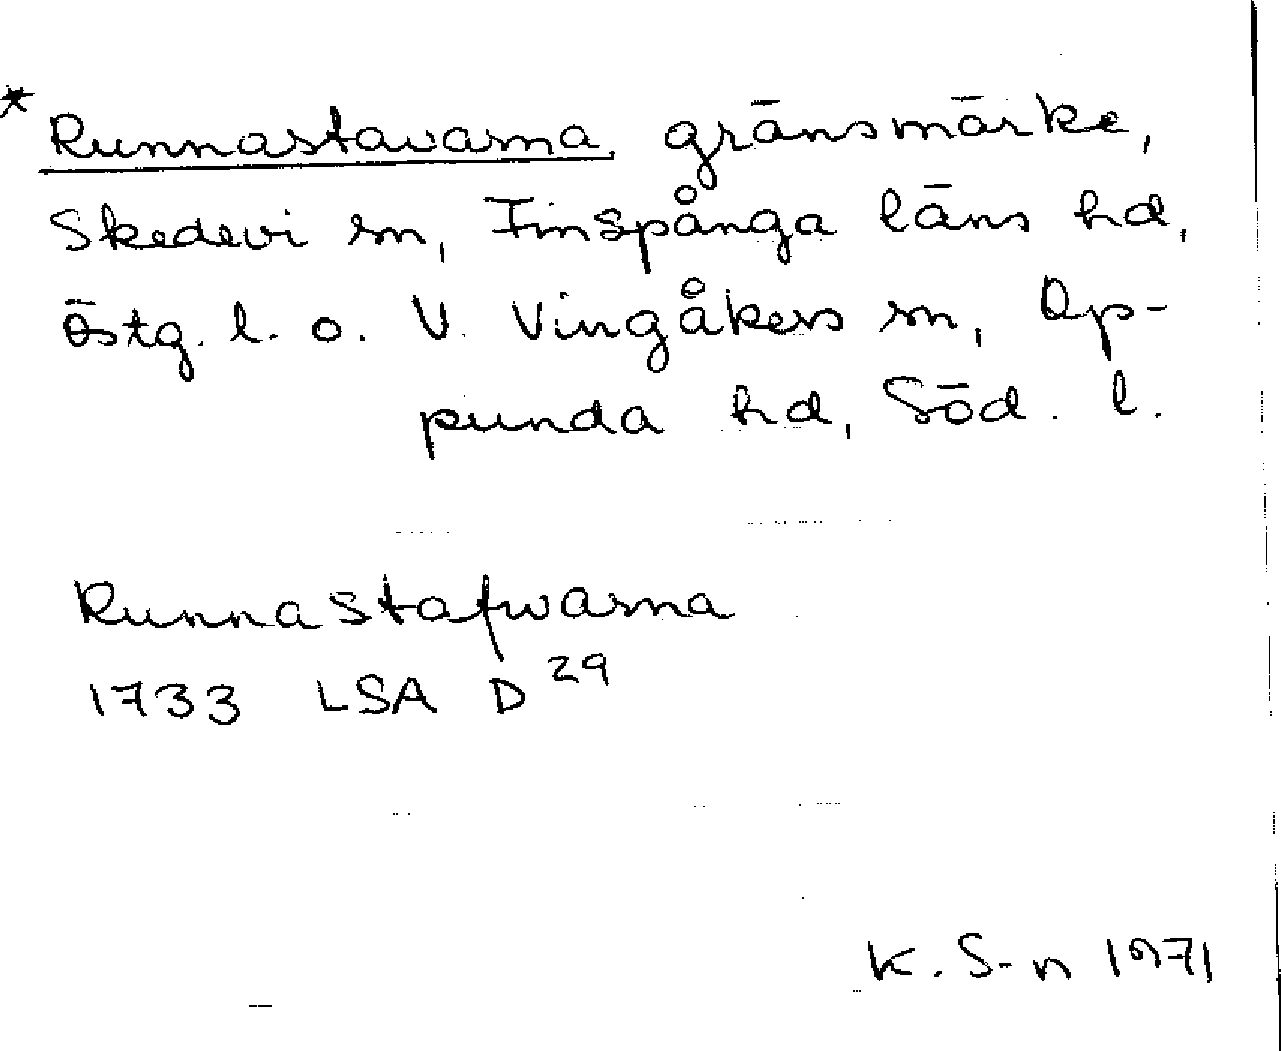 * Runnastavarna, gränsmärke,
Skedevi sn, Finspånga läns hd,
Östg. l. o. V. Vingåkers sn, Op-
punda hd, Söd. l.
Runnastafwarna
1733 LSA D 29
K. S-n 1971